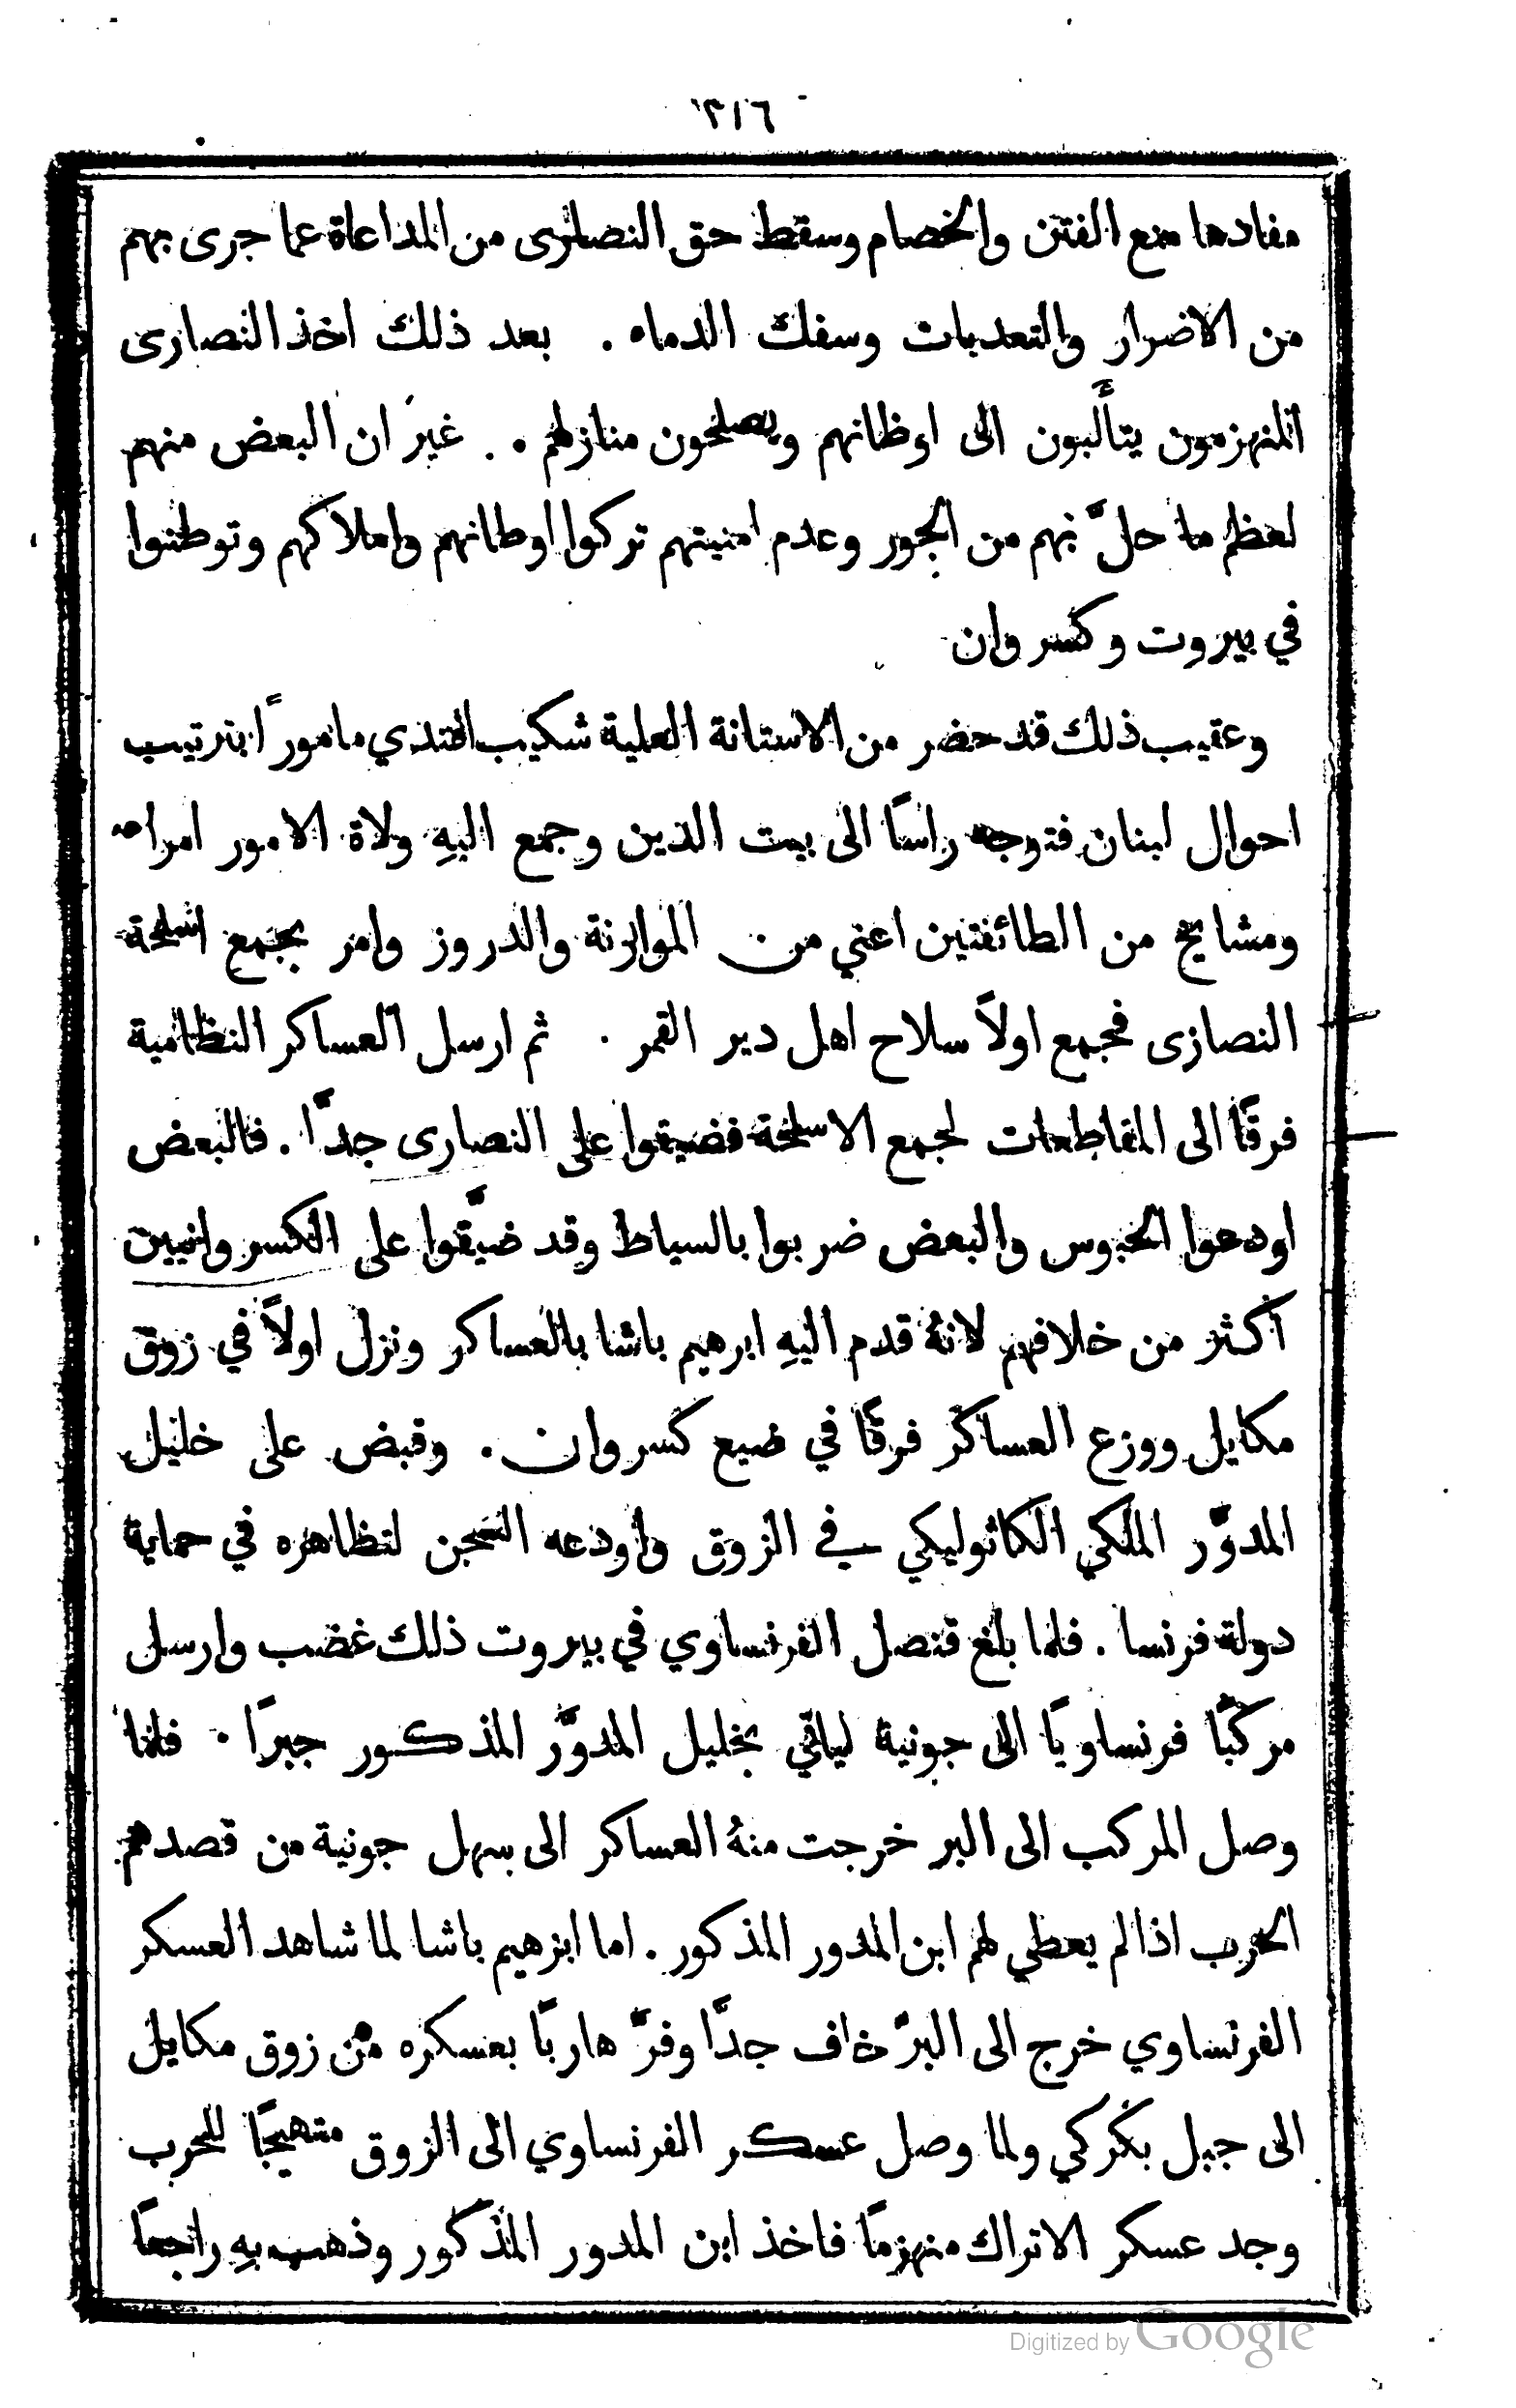 ٣١٦
مفادها منع الفتن والخصام وسقط حق النصارى من المداعاة عما جرى بهم
من الاضرار والتعديات وسفك الدماء . بعد ذلك اخذ النصارى
المنهزمون يتألبون الى اوطانهم ويصلحون منازلهم . غير ان البعض منهم
لعظم ما حلّ بهم من الجور وعدم امنيتهم تركوا اوطانهم واملاكهم وتوطنوا
في بيروت وكسروان
وعقيب ذلك قد حضر من الاستانة العلية شكيب افندي مامورًا بترتيب
احوال لبنان فتوجه راسًا الى بيت الدين وجمع اليهِ ولاة الامور امراء
ومشايخ من الطائفتين اعني من الموارنة والدروز وامر بجمع اسلحة
النصارى فجمع اولاً سلاح اهل دير القمر . ثم ارسل العساكر النظامية
فرقًا الى المقاطعات لجمع الاسلحة فضيقوا على النصارى جدًّا . فالبعض
اودعوا الحبوس والبعض ضربوا بالسياط وقد ضيَّقوا على الكسروانيين
أكثر من خلافهم لانهُ قدم اليهِ ابرهيم باشا بالعساكر ونزل اولاً في زوق
مكايل ووزع العساكر فرقًا في ضيع كسروان . وقبض على خليل
المدوَّر الملكي الكاثوليكي في الزوق واودعه السجن لتظاهره في حماية
دولة فرنسا . فلما بلغ قنصل الفرنساوي في بيروت ذلك غضب وارسل
مركبًا فرنساويًا الى جونية لياتي بخليل المدوَّر المذكور جبرًا . فلما
وصل المركب الى البر خرجت منهُ العساكر الى سهل جونية من قصدهم
الحرب اذا لم يعطي لهم ابن المدور المذكور . اما ابرهيم باشا لما شاهد العسكر
الفرنساوي خرج الى البرّ خاف جدًّا وفرَّ هاربًا بعسكره من زوق مكايل
الى جبل بكركي ولما وصل عسكر الفرنساوي الى الزوق متهيجًا للحرب
وجد عسكر الاتراك منهزمًا فاخذ ابن المدور المذكور وذهب بهِ راجعًا
Digitized by Google